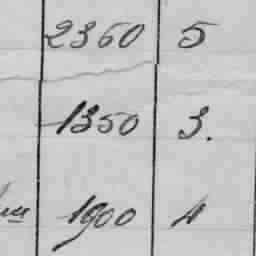 2360 5
1350 3.
1900 4